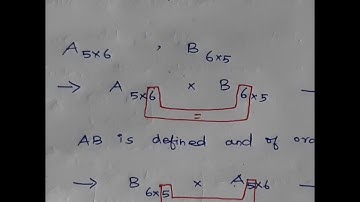 A 5×6 , B 6×5
→ A 5×6 × B 6×5 —
=
AB is defined and of
→ B 6×5 × A 5×6 —